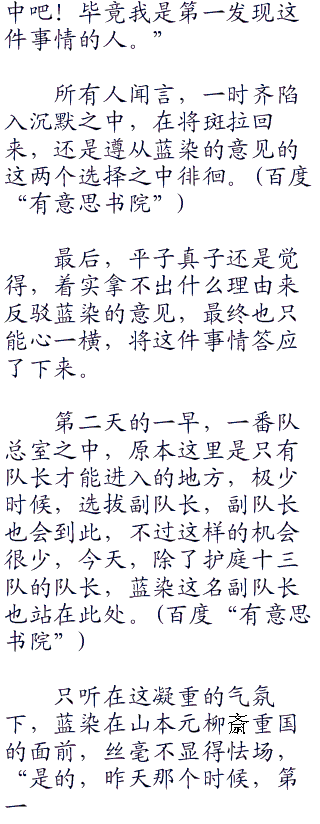 中吧！毕竟我是第一发现这
件事情的人。”
所有人闻言，一时齐陷
入沉默之中，在将斑拉回
来，还是遵从蓝染的意见的
这两个选择之中徘徊。(百度
“有意思书院”)
最后，平子真子还是觉
得，着实拿不出什么理由来
反驳蓝染的意见，最终也只
能心一横，将这件事情答应
了下来。
第二天的一早，一番队
总室之中，原本这里是只有
队长才能进入的地方，极少
时候，选拔副队长，副队长
也会到此，不过这样的机会
很少，今天，除了护庭十三
队的队长，蓝染这名副队长
也站在此处。(百度“有意思
书院”)
只听在这凝重的气氛
下，蓝染在山本元柳斎重国
的面前，丝毫不显得怯场，
“是的，昨天那个时候，第
一